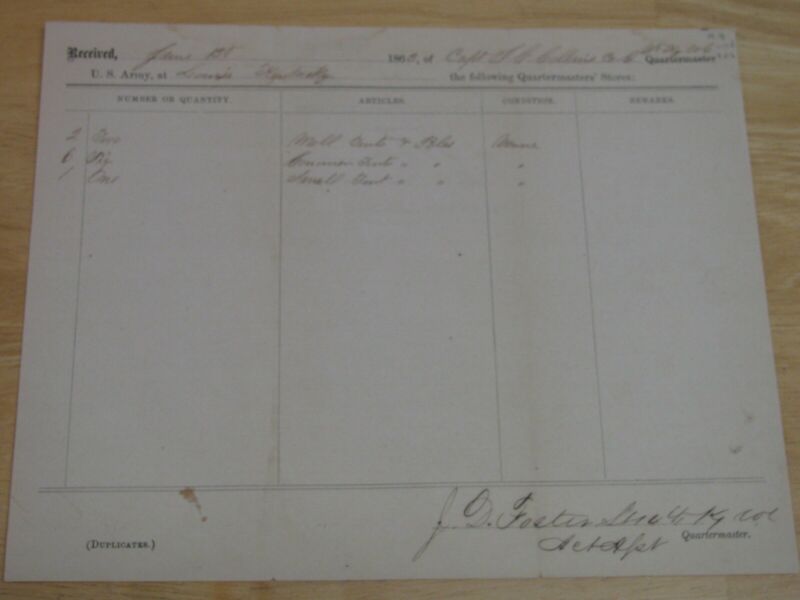 Received, June 1st 1863, of Capt Collins Co
U. S. Army, at Louisa Kentucky the following Quartermasters' Stores: Quartermaster
NUMBER OR QUANTITY. ARTICLES. CONDITION. REMARKS.
2 Two Wall Tents & Poles
6 Six Common Tents " " "
1 One Small Tent " " "
J. D. Foster Ky Vol
Act
(DUPLICATES.) Quartermaster.